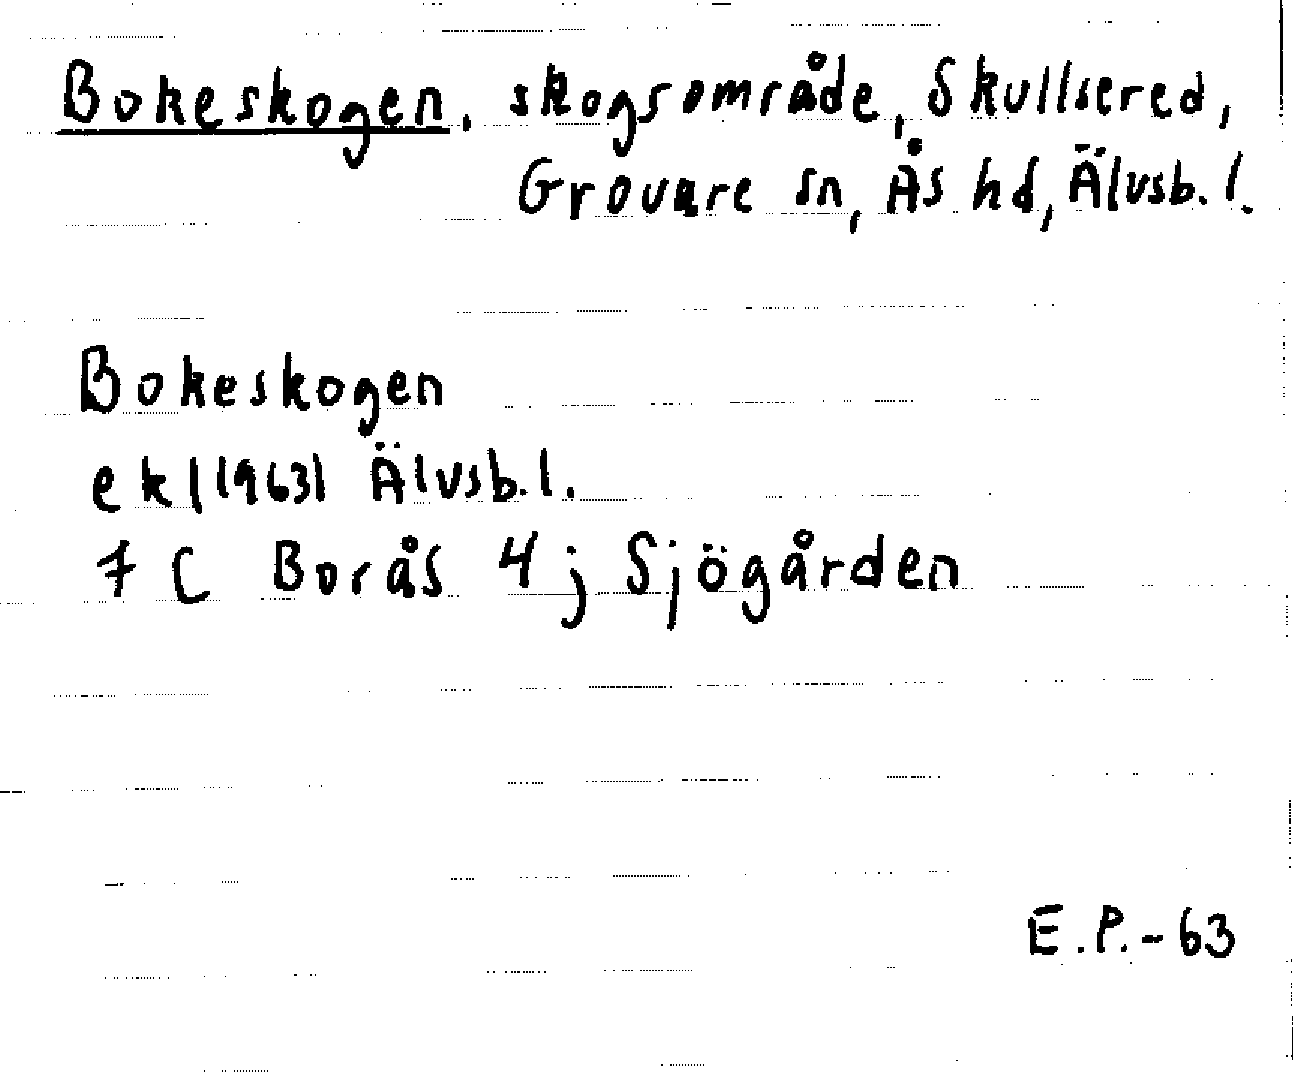 Bokeskogen, skogsområde, Skullsered,
Grovare sn, Ås hd, Älvsb. l.
Bokeskogen
ek (1963) Älvsb. l.
7 C Borås 4 j Sjögården
E.P.-63